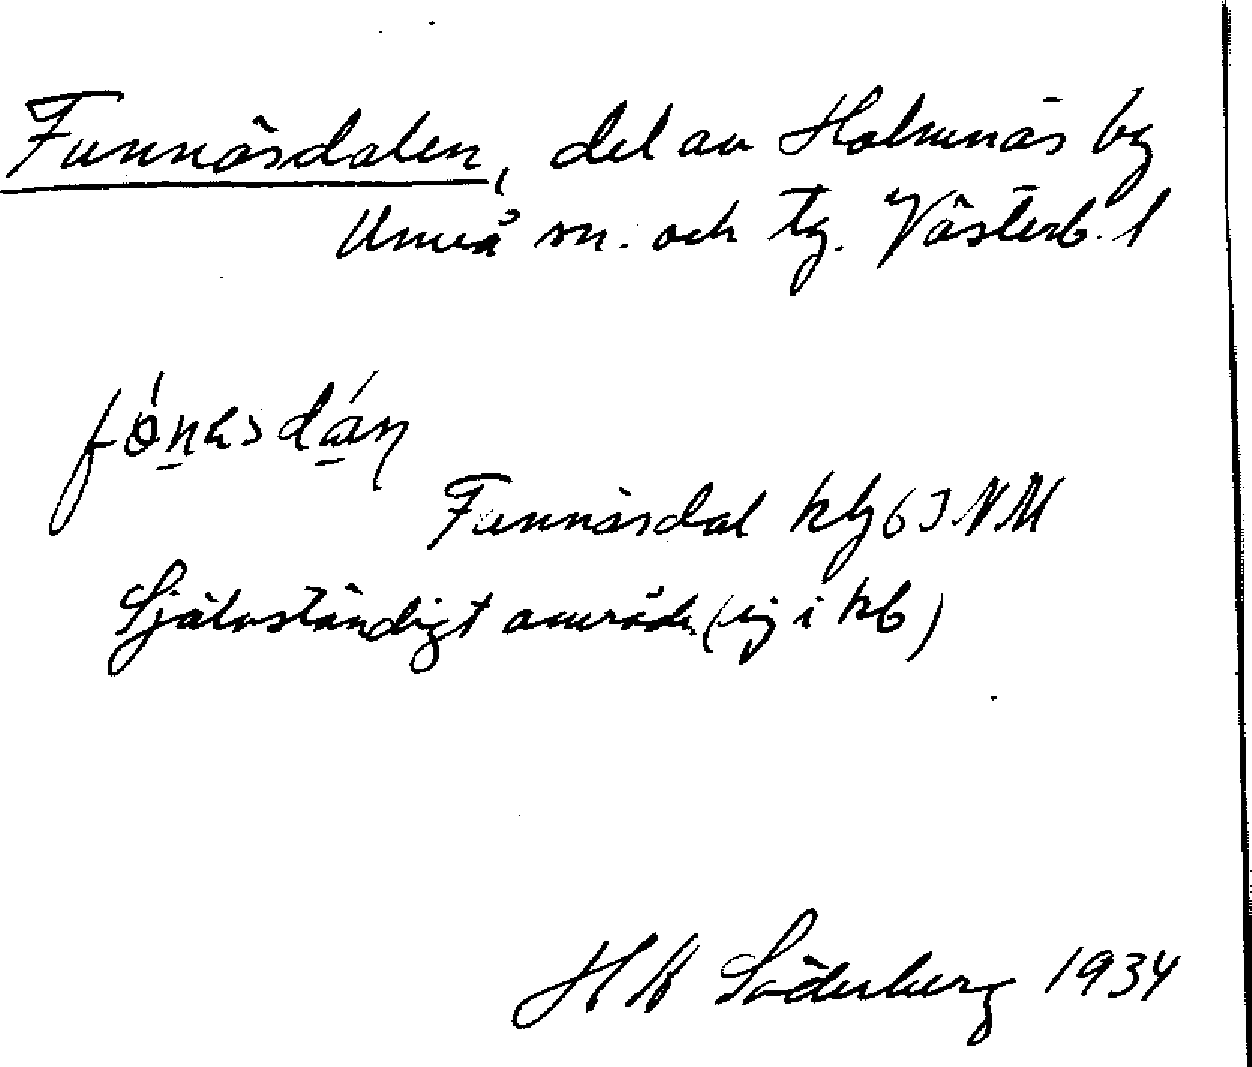 Funnäsdalen, del av Holmnäs by
Umeå sn. och tg. Västerb. l
Funnäsdal kbj 63 NM
Självständigt område (ej i kb)
H W Söderberg 1934